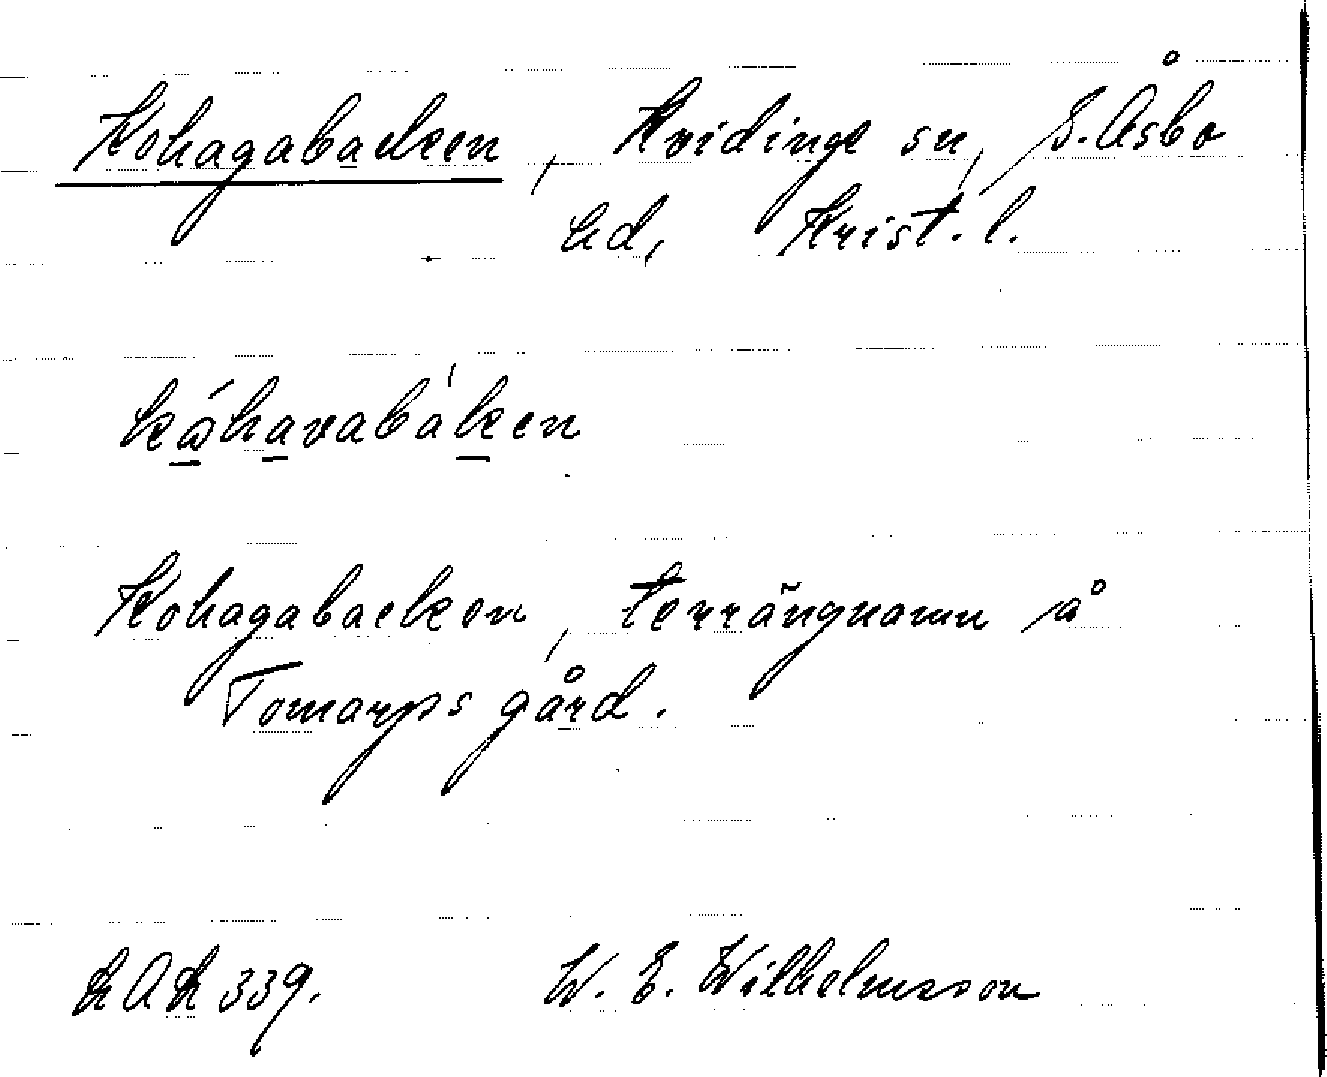 Kohagabacken, Kvidinge sn, S. Åsbo
hd, Krist. l.
kåhavabaken
Kohagabacken, terrängnamn å
Tomarps gård.
LAL 339. W. E. Wilhelmsson